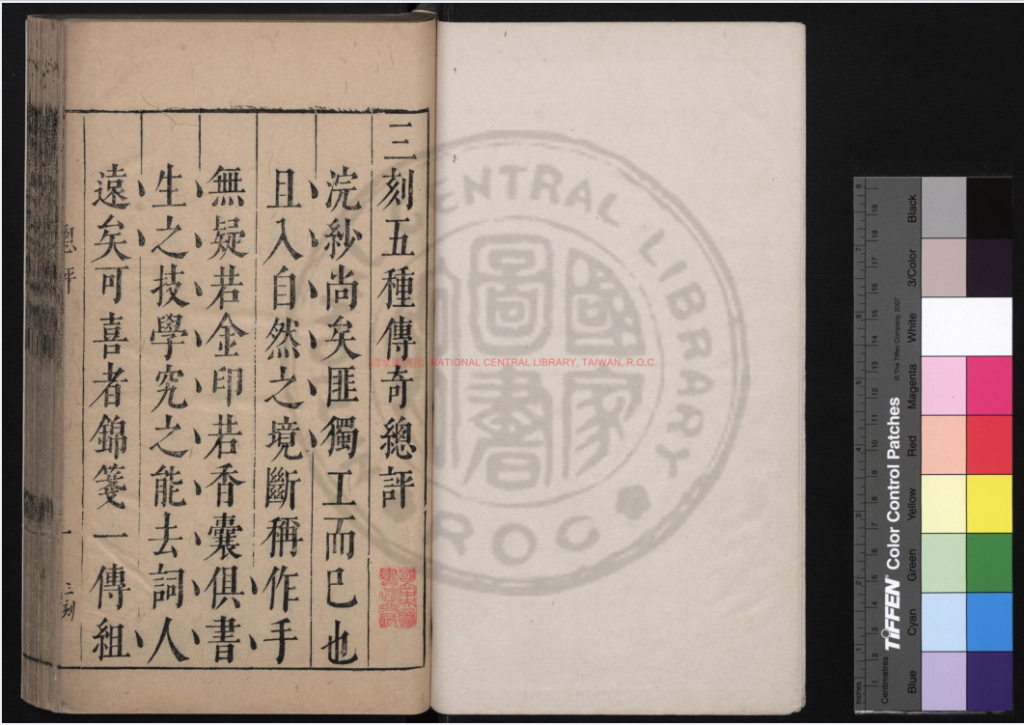 三刻五種傳奇總評
浣紗尚矣匪獨工而已也
且入自然之境斷稱作手
無疑若金印若香囊俱書
生之技學究之能去詞人
遠矣可喜者錦箋一傳組
總評
一
三刻
國家圖書館 NATIONAL CENTRAL LIBRARY, TAIWAN, R.O.C.
CENTRAL LIBRARY
ROC
國家圖書
TIFFEN Color Control Patches
© The Tiffen Company, 2007
Centimetres
Inches
Blue
Cyan
Green
Yellow
Red
Magenta
White
3/Color
Black